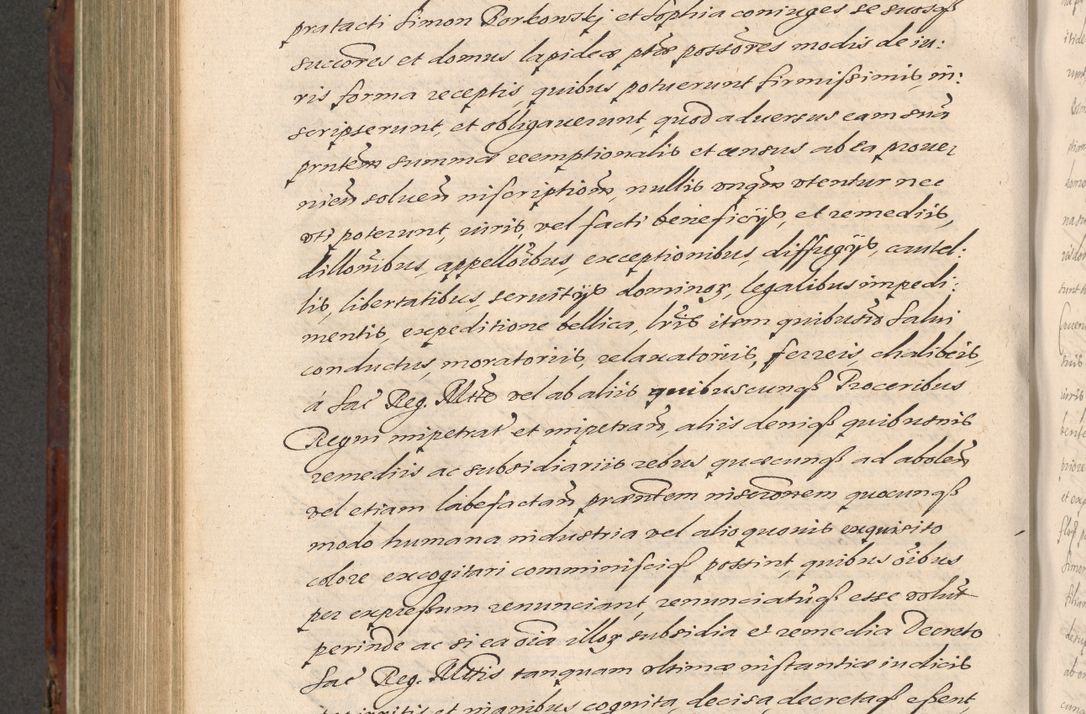 pratacti Simon Borkowskj et Sophia coniuges se suosq3
succōres et domus lapideæ ptæ possōres modis de iu:
ris forma receptis, quibus potuerunt firmissimis, in:
scripserunt, et obligauerunt, quod aduersus eam suā
prntem summæ reemptionalis et census ab ea proue,
nieñ solueñ inscriptioñ, nullis vnqm vtentur nec
vti poterunt, iuris, vel facti beneficijs, et remediis,
dillōnibus, appellōibus, exceptionibus, diffugijs, cautel:
lis, libertatibus, seruitijs dominor, legalibus impedi:
mentis, expeditione bellica, lrīs item quibusuis salui
conductus moratoriis, relaxatoriis, ferreis, chalibeis,
á Sac Reg. Mtte vel ab aliis quibuscunq3 Proceribus
Regni impetrat et impetrañ, aliis deniq3 quibusuis
remediis ac subsidiariis rebus quæcunq3 ad aboleñ
vel etiam labefactañ præntem inscrōnem quocunq3
modo humana industria vel alio quouis exquisito
colore excogitari comminisciq3 possint, quibus oībus
per expressum renunciant, renunciatuq3 esse volut
perinde ac si ea oīa illor subsidia et remedia Decreto
Sac Reg. Mttis tanquam vltimæ instantiæ iudicis
et inanibus cognita, decisa, decretaq3 essent